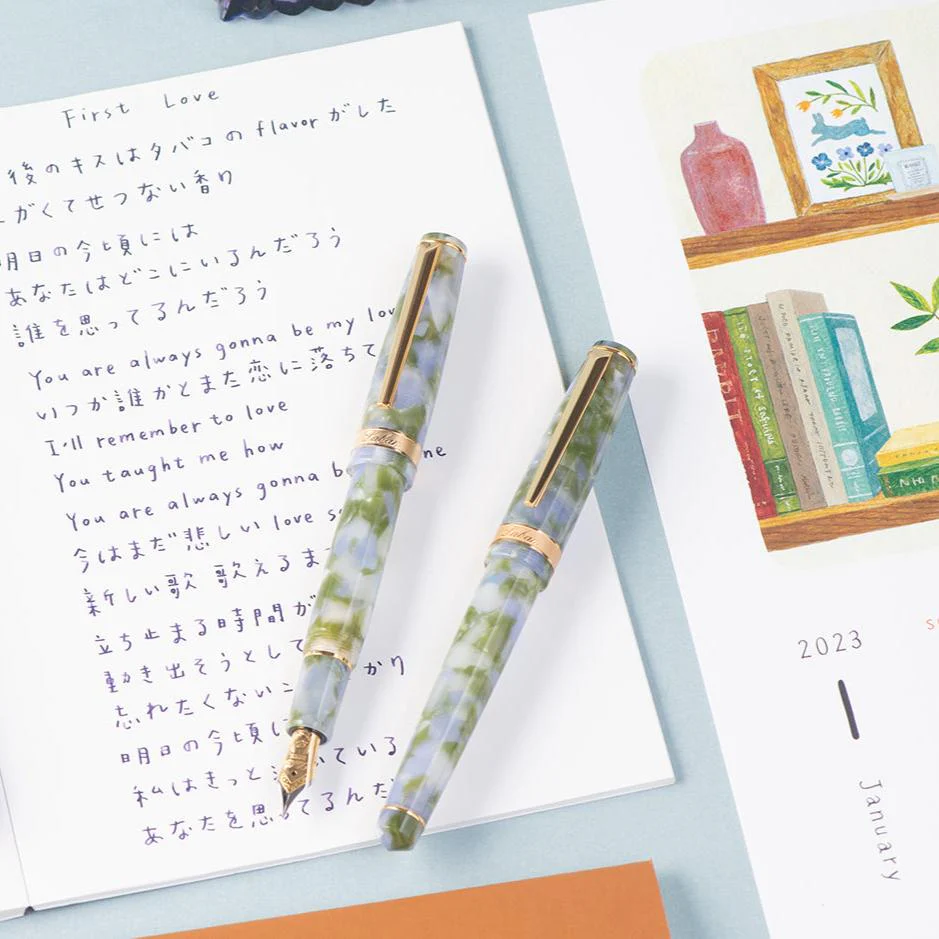 First Love
後のキスはタバコの flavor がした
がくてせつない香り
明日の今頃には
あなたはどこにいるんだろう
誰を思ってるんだろう
You are always gonna be my lov
いつか誰かとまた恋に落ちて
I'll remember to love
You taught me how
You are always gonna b ne
今はまだ悲しい love s
新しい歌 歌えるま
立ち止まる時間が
動き出そうとして かり
忘れたくないこ
明日の今頃に
私はきっと いている
あなたを思ってるんだ
2023
1
January